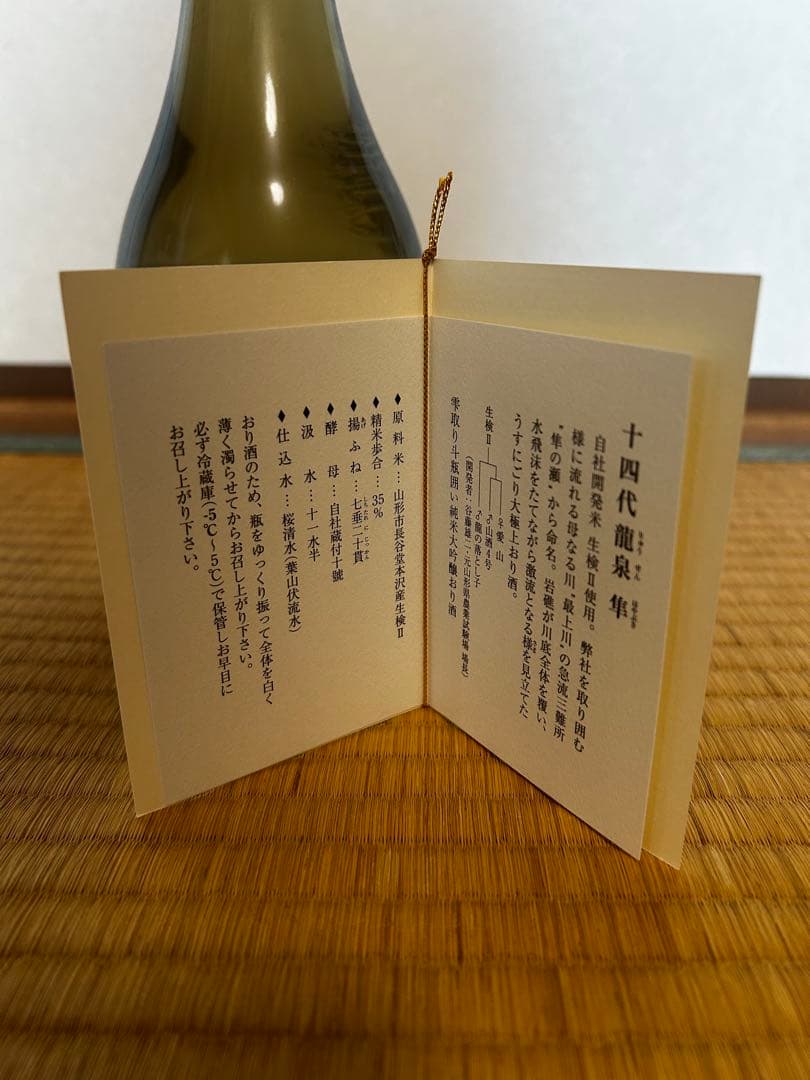 十四代 龍泉 隼
りゅう せん はやぶさ
自社開発米 生検Ⅱ使用。弊社を取り囲む
様に流れる母なる川〝最上川〟の急流三難所
〝隼の瀬〟から命名。岩礁が川底全体を覆い、
水飛沫をたてながら激流となる様を見立てた
さま
うすにごり大極上おり酒。
♀愛山
♂山酒4号
生検Ⅱ
♂龍の落とし子
(開発者:谷藤雄二・元山形県農業試験場 場長)
雫取り斗瓶囲い 純米大吟醸おり酒
♦原料米…山形市長谷堂本沢産生検Ⅱ
♦精米歩合…35%
♦揚ふね…七垂二十貫
あげ
しち たれ に じっ かん
♦酵母…自社蔵付十號
♦汲水…十一水半
♦仕込水…桜清水(葉山伏流水)
おり酒のため、瓶をゆっくり振って全体を白く
薄く濁らせてからお召し上がり下さい。
必ず冷蔵庫(-5℃〜5℃)で保管しお早目に
お召し上がり下さい。